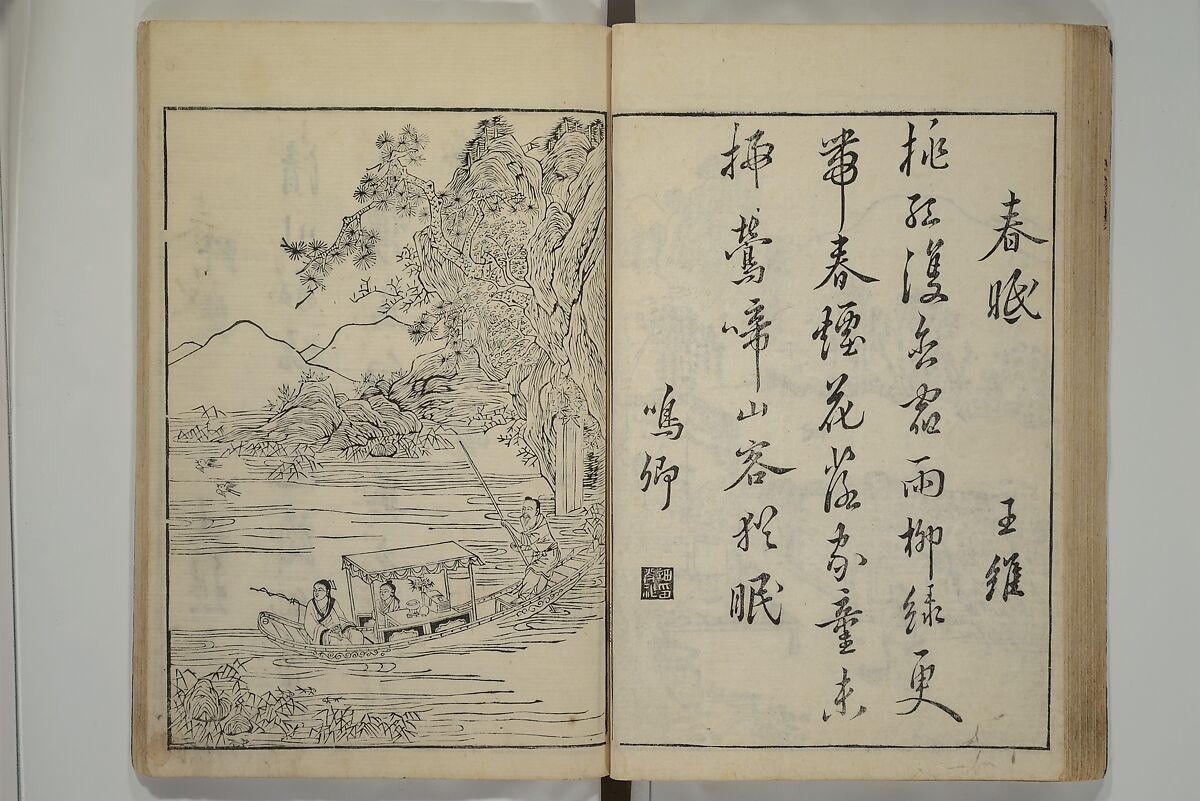 春眠　王維
桃紅復含宿雨柳綠更
帶春煙花落家童未
掃鶯啼山客猶眠
鳴卿